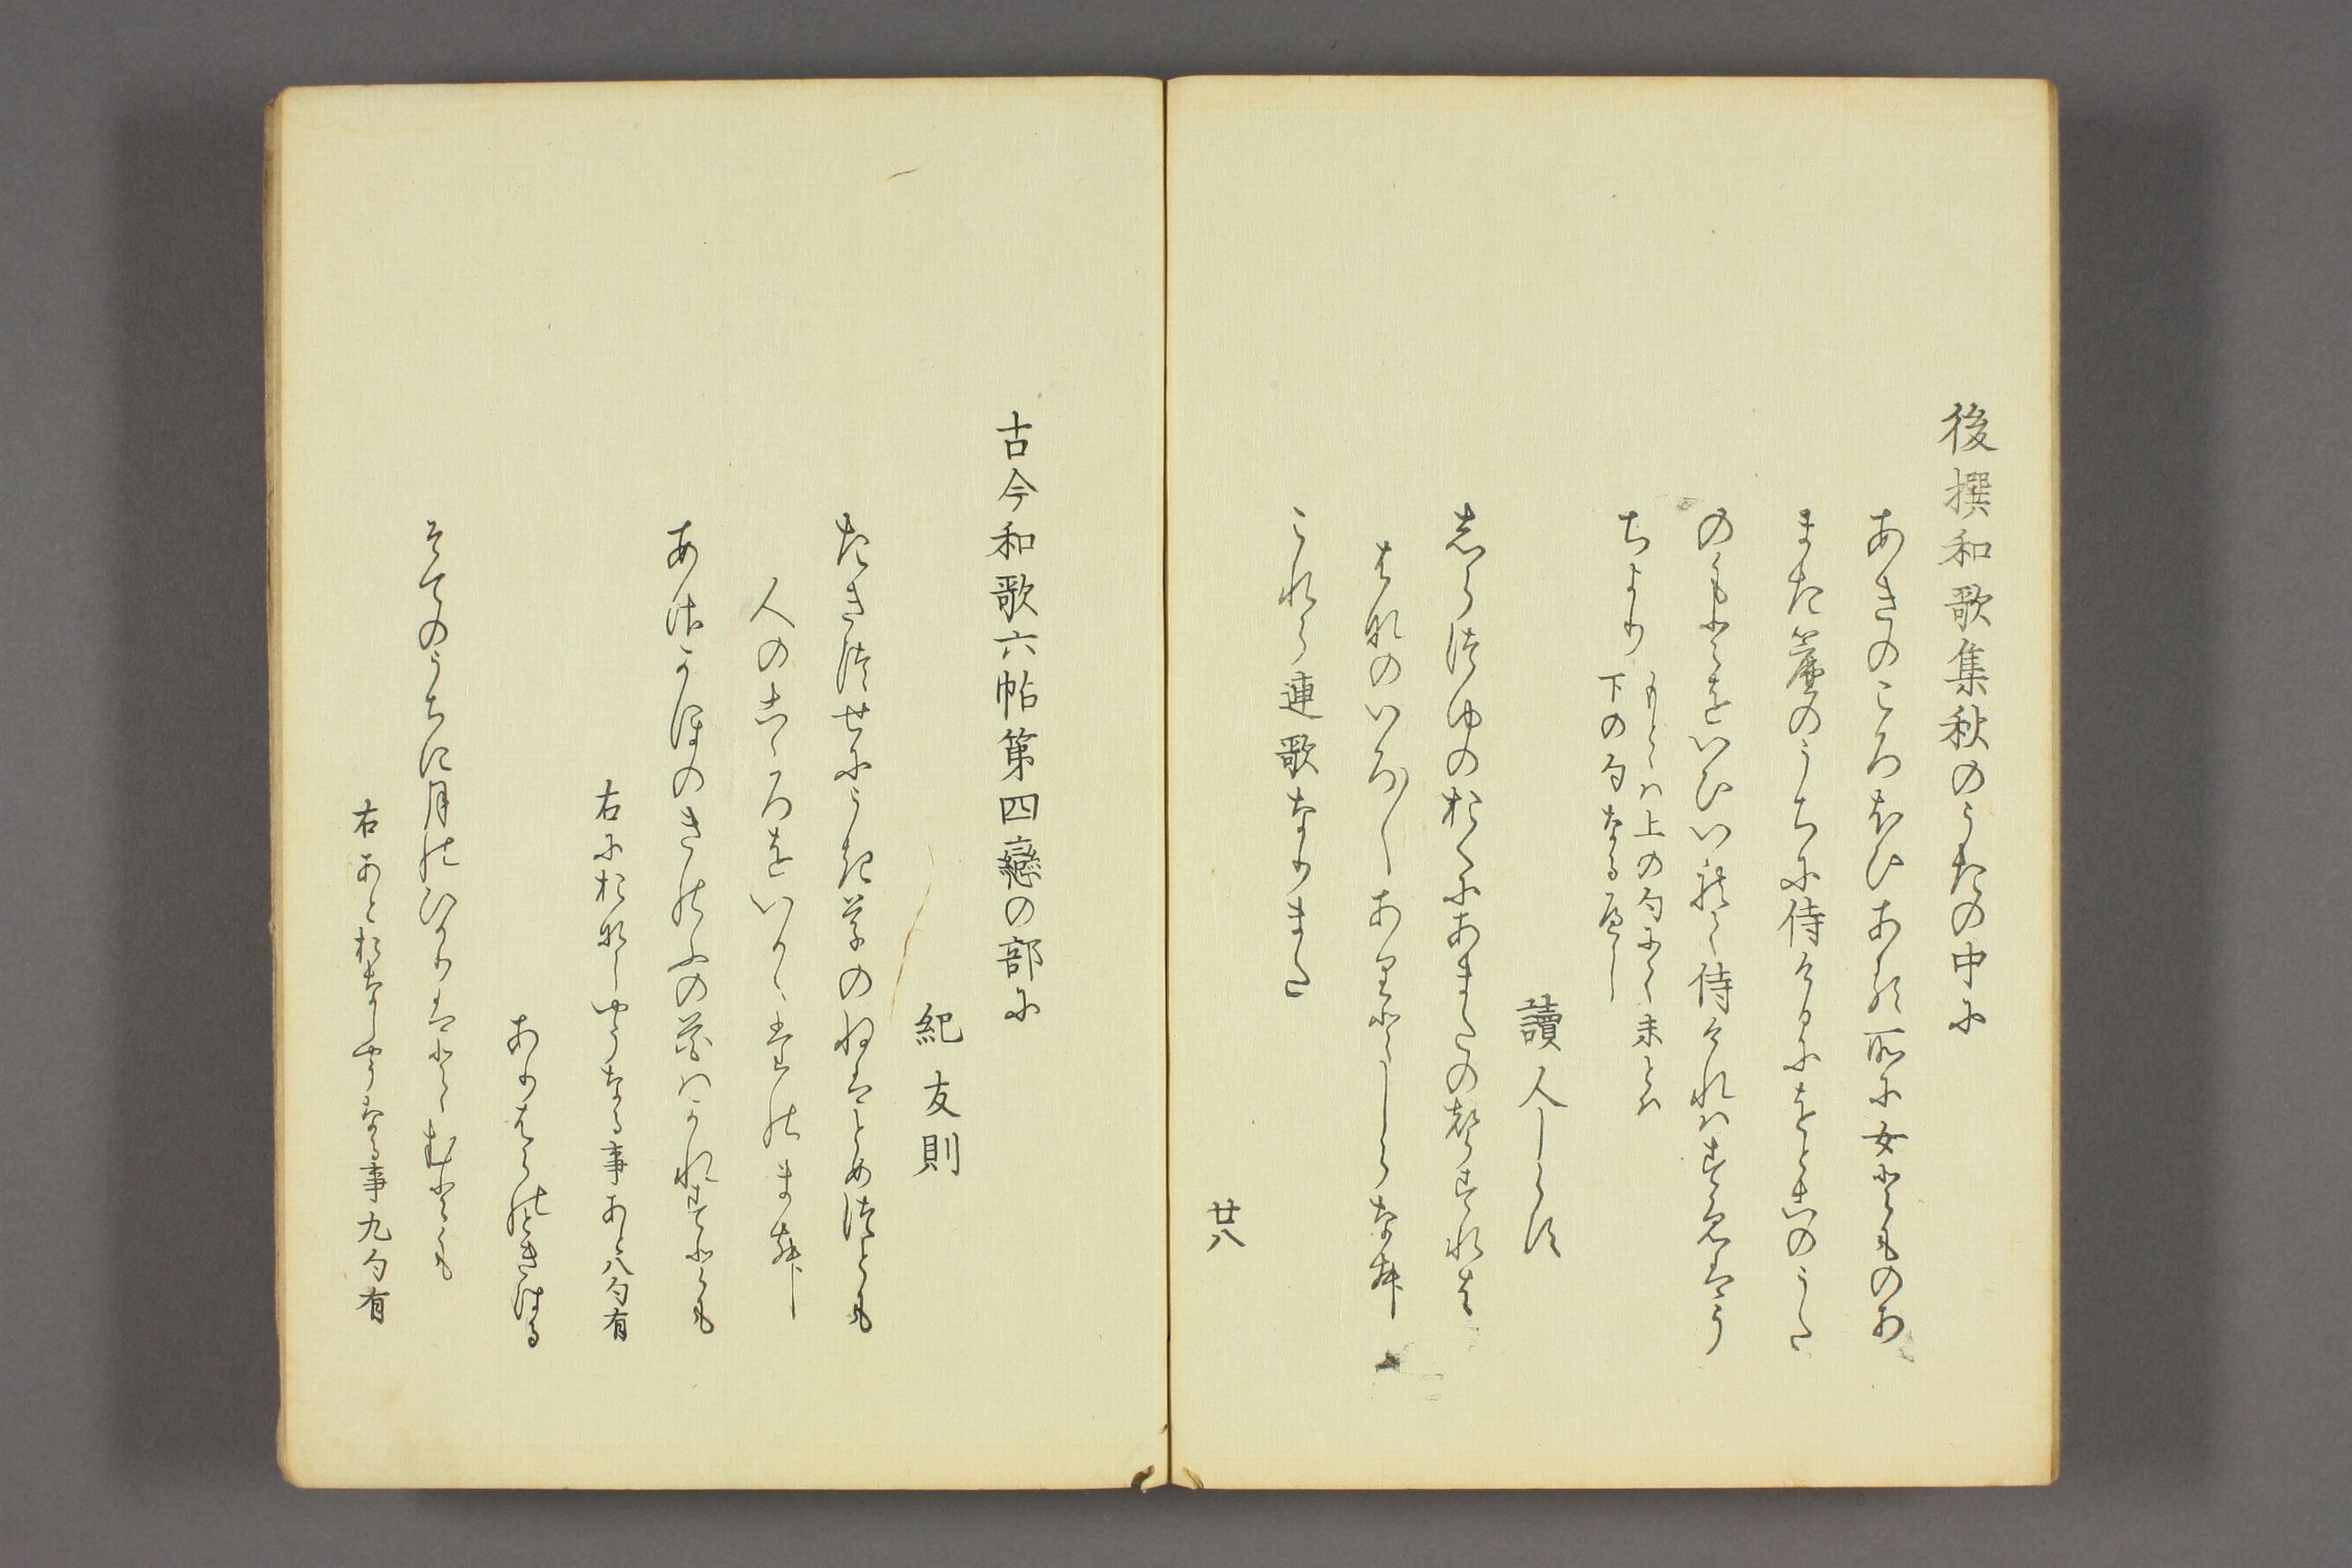 後撰和歌集秋のうたの中に
あきのころほひある所に女ともの
また簾のうちに侍けるにをとこのうた
のもとをいひいれて侍けれはすゑはう
ちより
もとゝは上の句にて末とは
下の句なるへし
讀人しらす
しらつゆのおくにあまたの聲すれは
はなのいろ〳〵ありとしらなむ
これら連歌なりまた
廿八
古今和歌六帖第四戀の部に
紀友則
たきつせにうき草のねはとめつとも
人のこゝろをいかゝたのまむ
あさかほのきのふの花はかれすとも
右におなしやうなる事あと八句有
ありはらのときはる
そてのうちに月のひかりはとゝむとも
右あとおなしやうなる事九句有